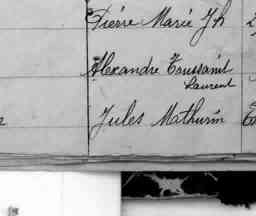 Pierre Marie Jh
Alexandre Toussaint
Laurent
Jules Mathurin